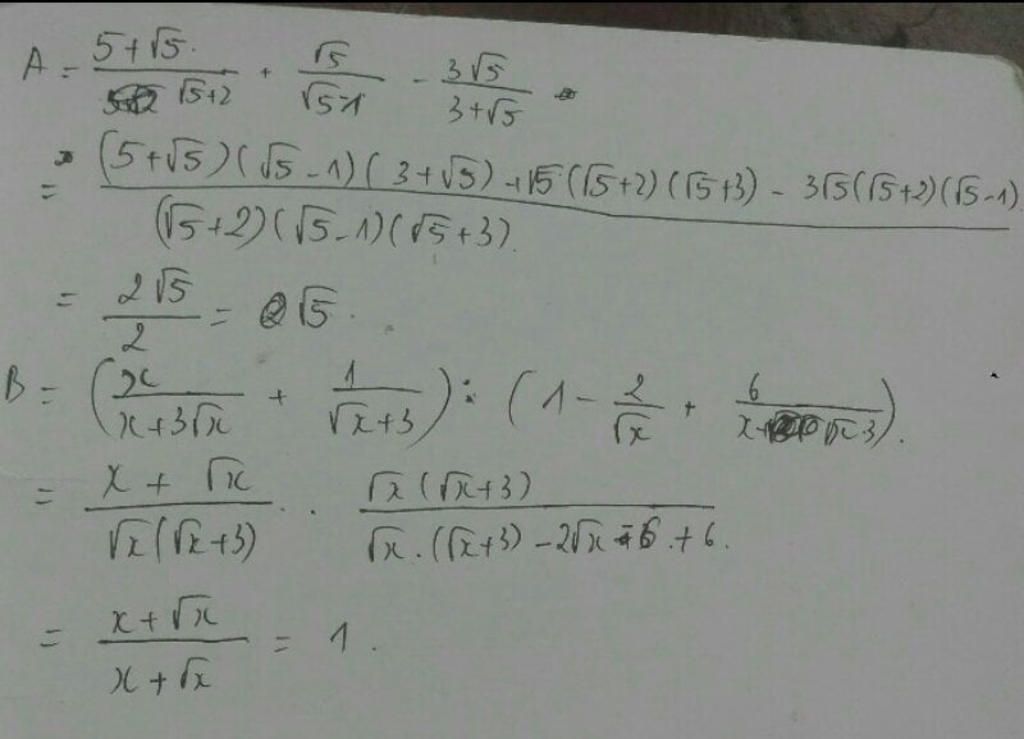 A = \frac{5+\sqrt{5}}{\sqrt{5}+2} + \frac{\sqrt{5}}{\sqrt{5}-1} - \frac{3\sqrt{5}}{3+\sqrt{5}}
= \frac{(5+\sqrt{5})(\sqrt{5}-1)(3+\sqrt{5})+\sqrt{5}(\sqrt{5}+2)(\sqrt{5}+3)-3\sqrt{5}(\sqrt{5}+2)(\sqrt{5}-1)}{(\sqrt{5}+2)(\sqrt{5}-1)(\sqrt{5}+3)}
= \frac{2\sqrt{5}}{2} = \sqrt{5}.
B = \left(\frac{x}{x+3\sqrt{x}} + \frac{1}{\sqrt{x}+3}\right) : \left(1 - \frac{2}{\sqrt{x}} + \frac{6}{x+\sqrt{x}3}\right).
= \frac{x+\sqrt{x}}{\sqrt{x}(\sqrt{x}+3)} \cdot \frac{\sqrt{x}(\sqrt{x}+3)}{\sqrt{x}.(\sqrt{x}+3)-2\sqrt{x}-6+6}.
= \frac{x+\sqrt{x}}{x+\sqrt{x}} = 1.